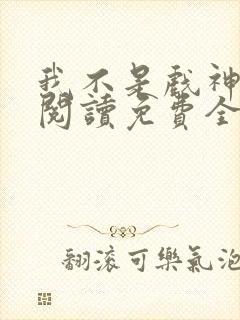 我不是戲神
閱讀免費全
翻滾可樂氣泡